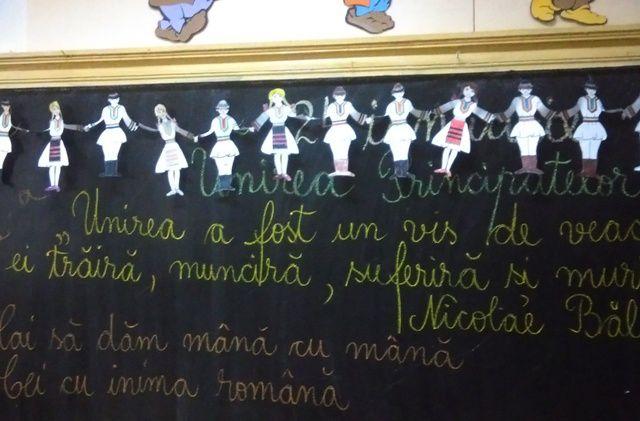 Unirea Principatelor
Unirea a fost un vis de veac
ei trăiră, munciră, suferiră și muri
Nicolae Băl
Hai să dăm mână cu mână
Cei cu inima română